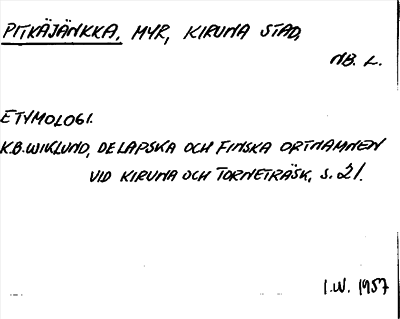 PITKÄJÄNKKA, MYR, KIRUNA STAD,
NB. L.
ETYMOLOGI.
K.B. WIKLUND, DE LAPSKA OCH FINSKA ORTNAMNEN
VID KIRUNA OCH TORNETRÄSK, S. 21.
I.W. 1957